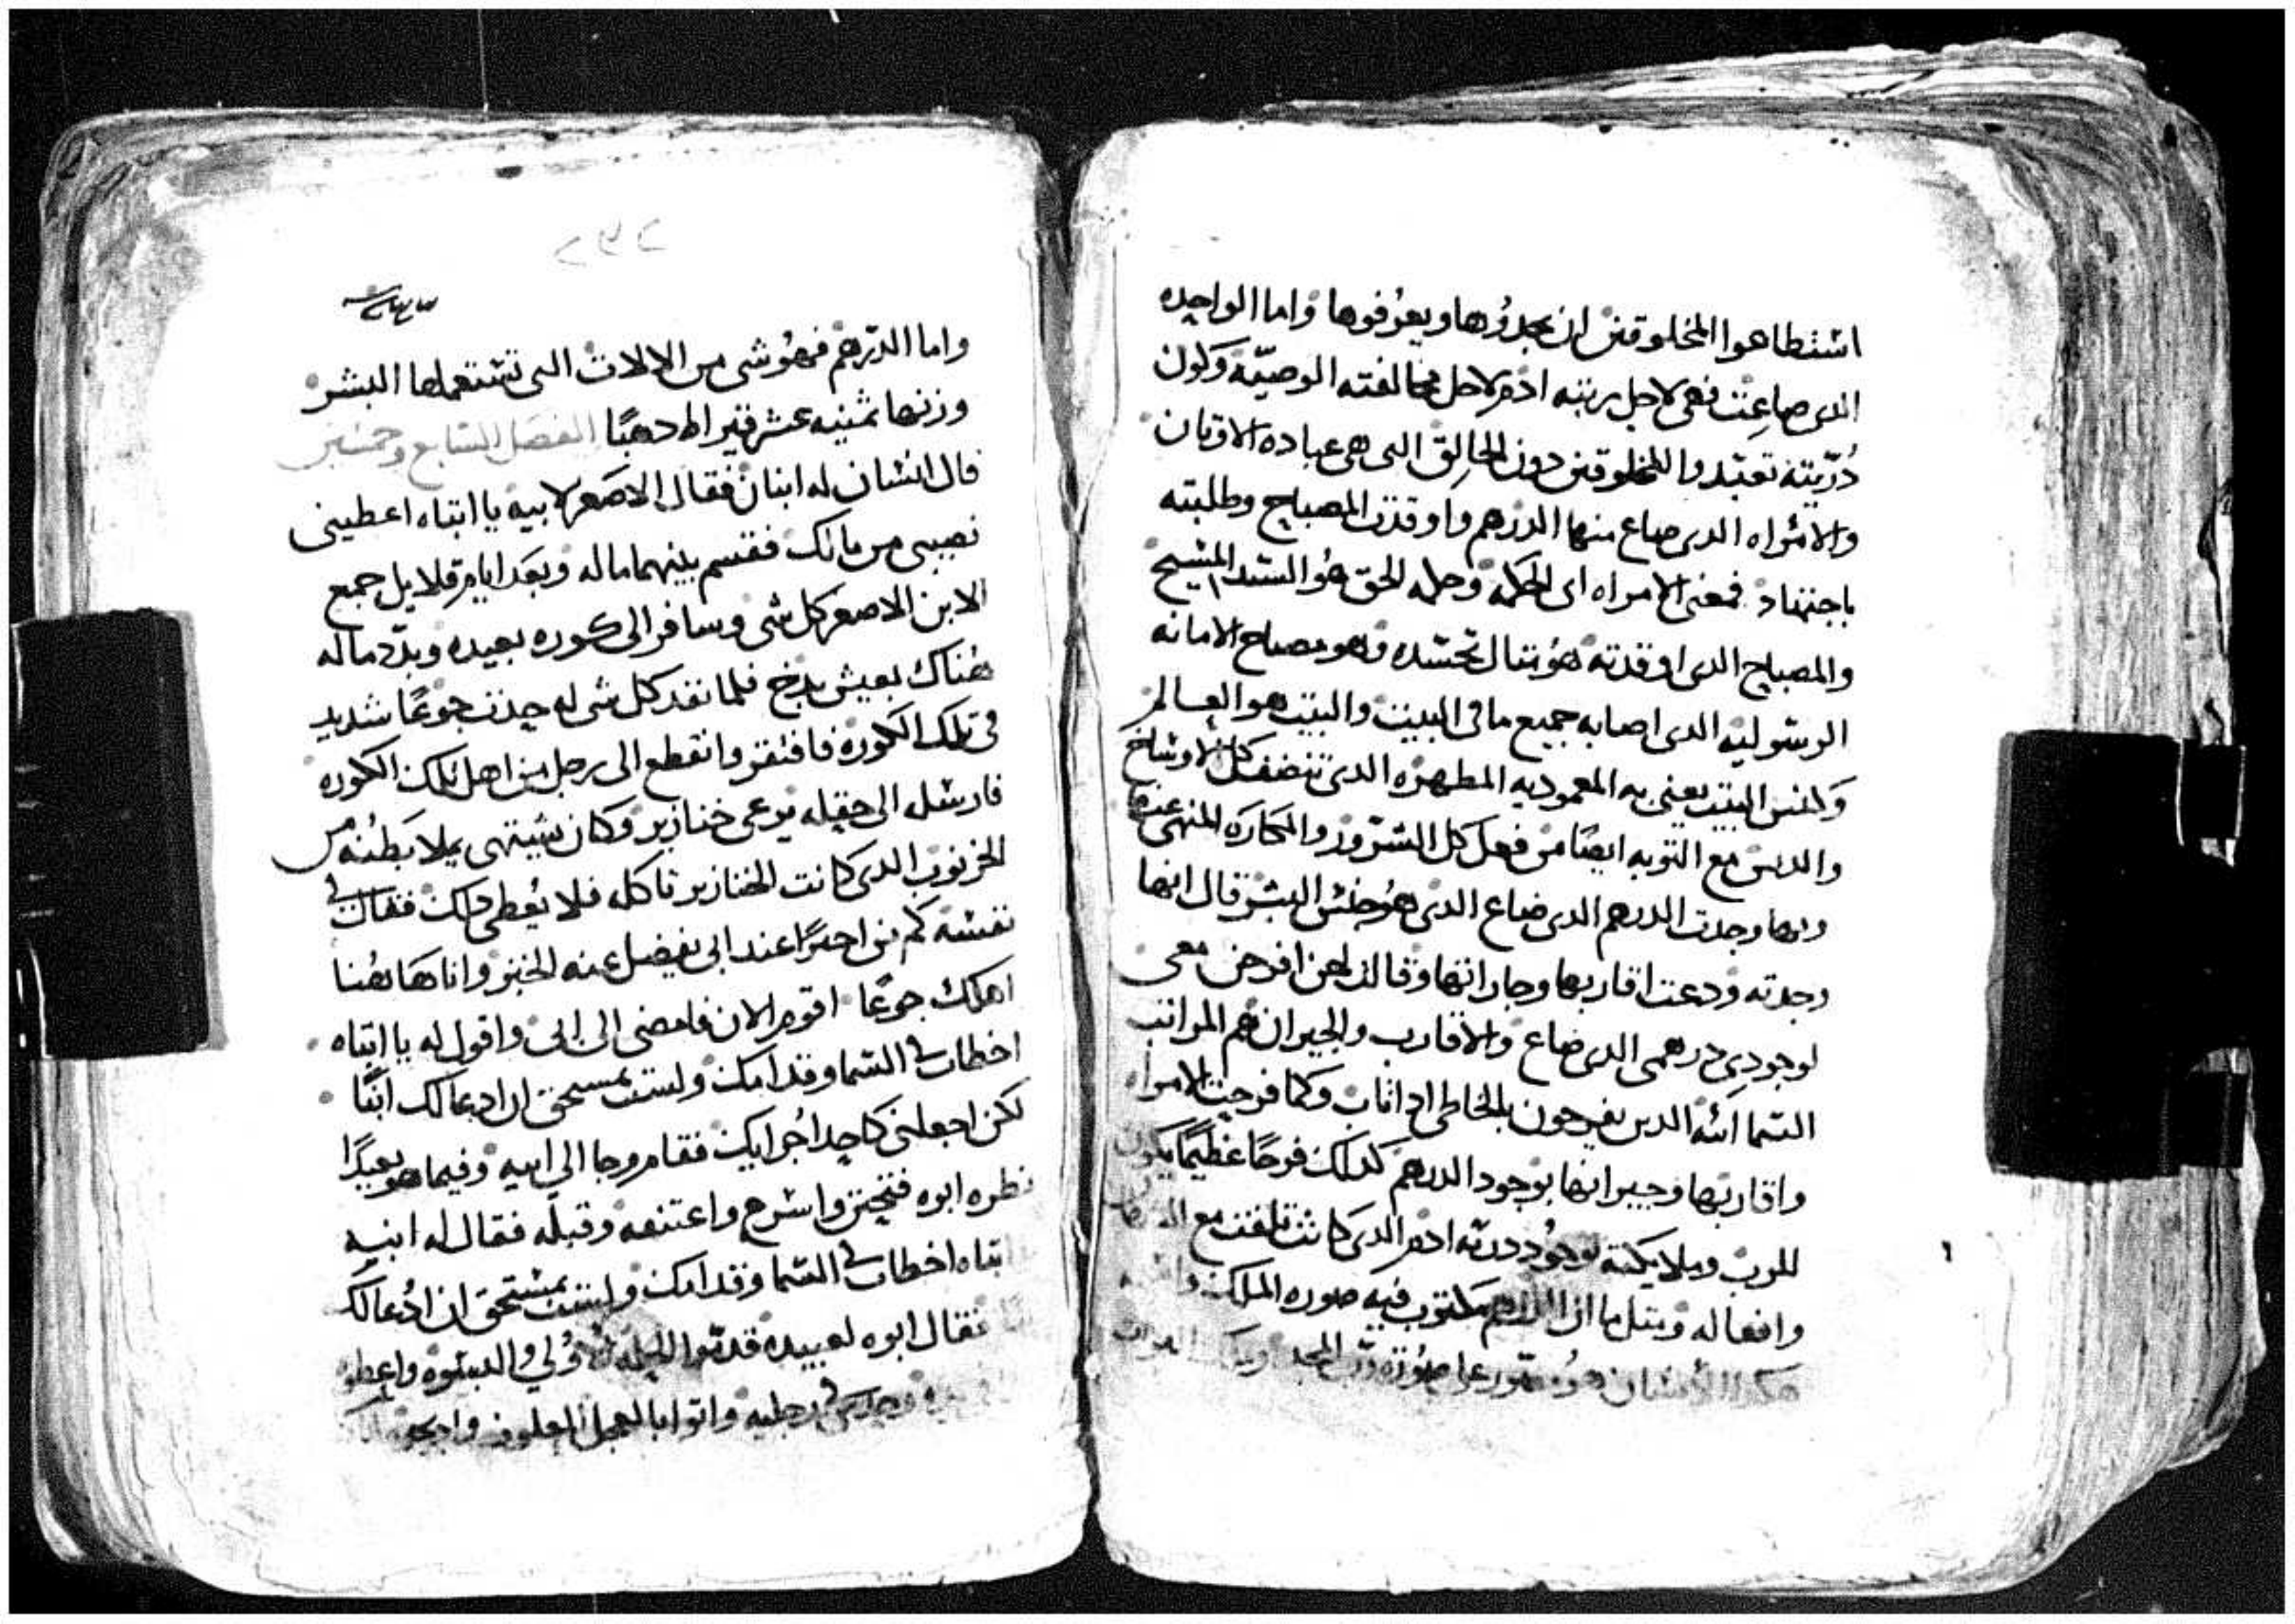 اشتطاهوا المخلوقين ان يجدوها ويعرفوها واما الواحده
الدى ضاعت فهى لاجل بريته ادم لاجل مخالفته الوصيّه وكون
دُرّيته تعبّدوا للمخلوقين دون الخالق التى هى عباده الاوتان
والامراه الدى ضاع منها الدرهم واوقدت المصباح وطلبته
باجتهاد فمعنى الامراه اى الحكمه وحكمه الحق هُو السَيد المسيح
والمصباح الدى اوقدته هُو تنال تجسّده وهو مصباح الامانه
الرسوليه الدى اصابه جميع ما فى البيت والبيت هو العالم
وكنس البيت يعنى به المعموديه المطهره الدى تنضف كل الاوساخ
والدنس مع التوبه ايضًا من فعل كل الشرور والمكاره المنهى عنها
وبها وجدت الدرهم الدى ضاع الدى هُو جنس البشر قال انها
وجدته ودعت اقاربها وجاراتها وقالت لهن افرحن معى
لوجودى درهمى الدى ضاع والاقارب والجيران هم المراتب
السمائيه الدين يفرحون بالخاطى ادا تاب وكما فرحت الامراه
واقاربها وجيرانها بوجود الدرهم كدلك فرحًا عظيمًا يكون
للرب وملايكته بوجود دريّه ادم الدى كانت تلفت مع
وافعاله ومتل ما ان الدرهم مكتوب فيه صوره الملك
هكدا الانسان هُو مصّور على صوُره رب المجد
٢٩٢
واما الدّرهم فهُو شى من الالات التى تستعملها البشر
وزنها ثمنيه عشر قيراط دهبًا الفصل السابع وخمسين
قال انسان له ابنان فقال الاصغر لابيه يا ابتاه اعطينى
نصيبى من مالك فقسم بينهما ماله وبعد ايام قلايل جمع
الابن الاصغر كل شى وسافر الى كوره بعيده وبدّد ماله
هُناك بعيش بدخ فلما نفد كل شى له حدث جوعًا شديد
فى تلك الكوره فافتقر وانقطع الى رجل من اهل تلك الكوره
فارسله الى حقله يرعى خنازير وكان يشتهى يملا بَطنُه من
الخرنوب الدى كانت الخنازير تاكله فلا يُعطى دلك فقال فى
نفسه كم من اجرًا عند ابى يفضل عنه الخبز وانا هاهُنا
اهلك جوعًا اقوم الان فامضى الى ابى واقول له يا ابتاه
اخطات فى السما وقدامك ولست بمستحق ان ادعا لك ابنًا
لكن اجعلنى كاحد اُجرايك فقام وجا الى ابيه وفيما هو بعيدًا
نظره ابوه فتحنن واسرع واعتنقه وقبله فقال له ابنه
ابتاه اخطات فى السما وقدامك ولست بمستحق ان ادُعا لك
فقال ابوه لعبيده قدّموا الحُله الاوُلى والبسوه واعطوا
فى رجليه واتوا بالعجل المعلوف وادبحوه